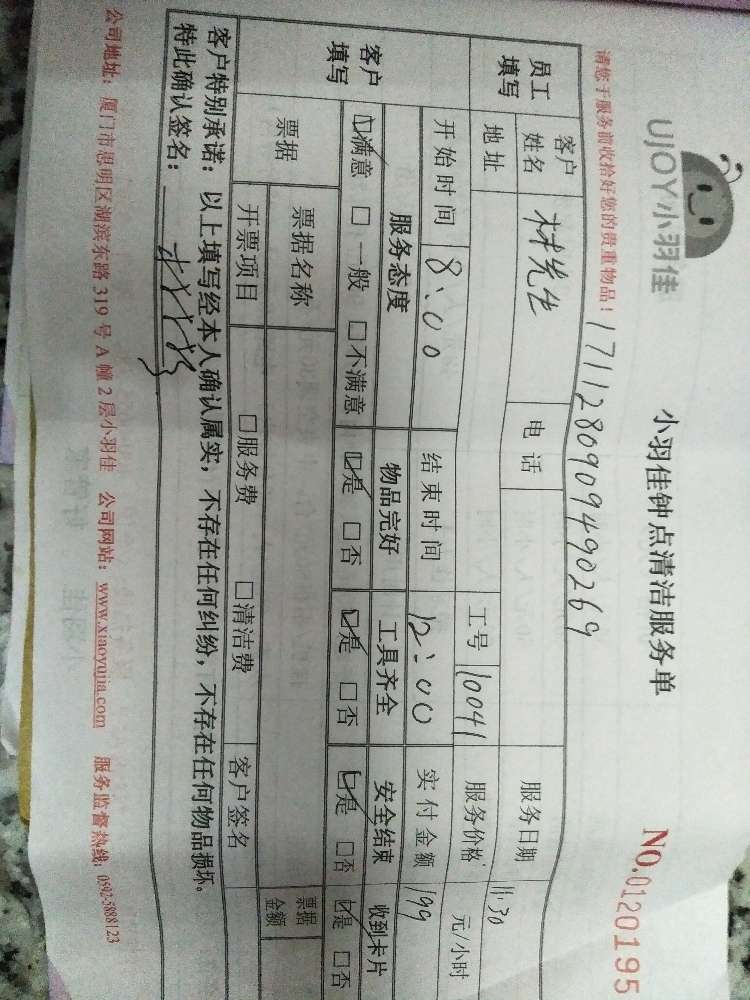 UJOY小羽佳
小羽佳钟点清洁服务单
NO.0120195
请您于服务前收拾好您的贵重物品！
1711280909490269
员工填写 客户姓名 林先生 电话 服务日期 11.30
地址 工号 10041 服务价格 元/小时
客户填写 开始时间 8:00 结束时间 12:00 实付金额 199
服务态度 物品完好 工具齐全 安全结束 收到卡片
☑满意 □一般 □不满意 ☑是 □否 ☑是 □否 ☑是 □否 ☑是 □否
票据 票据名称 票据金额
开票项目 □服务费 □清洁费 客户签名
客户特别承诺：以上填写经本人确认属实，不存在任何纠纷，不存在任何物品损坏。
特此确认签名：
公司地址：厦门市思明区湖滨东路319号A幢2层小羽佳 公司网站：www.xiaoyujia.com 服务监督热线：0592-5888123